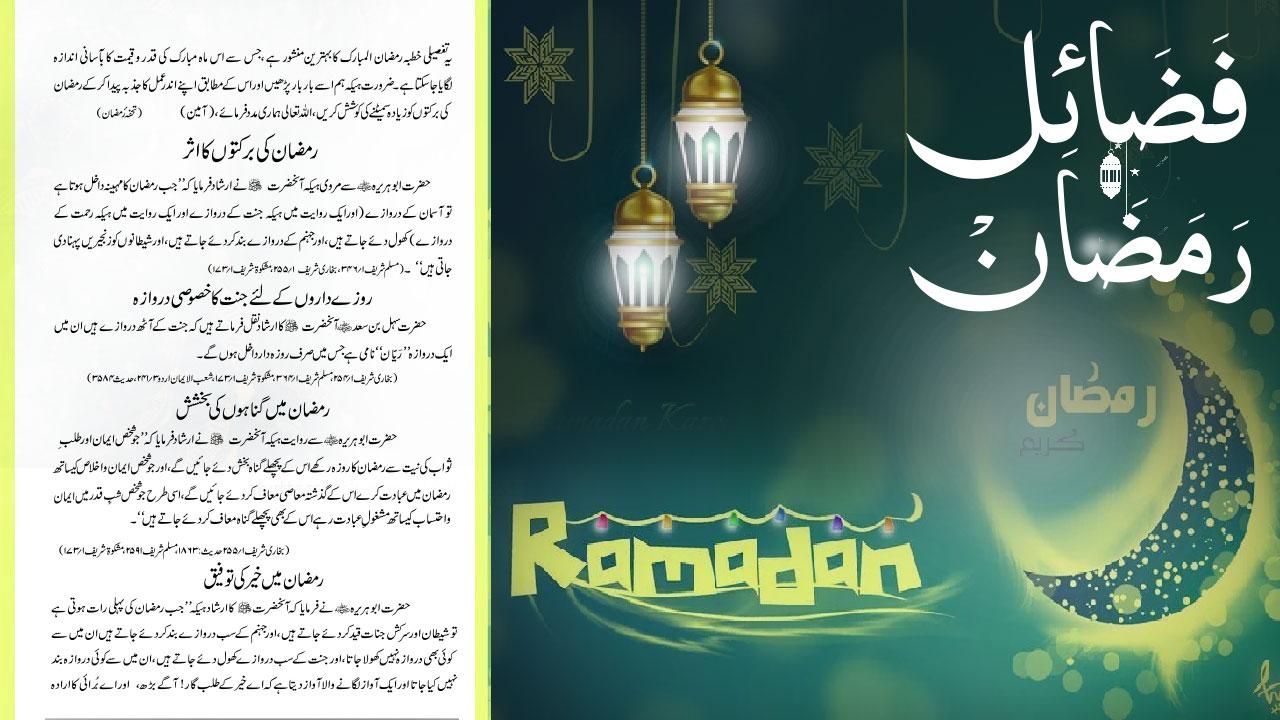 فَضَائِلِ
رَمَضَانْ
رمضان
كريم
Ramadan
یہ تفصیلی خطبہ رمضان المبارک کا بہترین منشور ہے، جس سے اس ماہ مبارک کی قدر و قیمت کا بآسانی اندازہ
لگایا جاسکتا ہے۔ ضرورت ہیکہ ہم اسے بار بار پڑھیں اور اس کے مطابق اپنے اندر عمل کا جذبہ پیدا کر کے رمضان
کی برکتوں کو زیادہ سمیٹنے کی کوشش کریں، اللہ تعالی ہماری مدد فرمائے، (آمین) (تحفۂ رمضان)
رمضان کی برکتوں کا اثر
حضرت ابو ہریرہؓ سے مروی ہیکہ آنحضرت ﷺ نے ارشاد فرمایا کہ ”جب رمضان کا مہینہ داخل ہوتا ہے
تو آسمان کے دروازے (اور ایک روایت میں ہیکہ جنت کے دروازے اور ایک روایت میں ہیکہ رحمت کے
دروازے) کھول دئے جاتے ہیں، اور جہنم کے دروازے بند کر دئے جاتے ہیں، اور شیطانوں کو زنجیریں پہنادی
جاتی ہیں“۔ (مسلم شریف ۱/۳۴۶، بخاری شریف ۱/۲۵۵، مشکوۃ شریف ۱/۱۷۳)
روزے داروں کے لئے جنت کا خصوصی دروازہ
حضرت سہل بن سعدؓ آنحضرت ﷺ کا ارشاد نقل فرماتے ہیں کہ جنت کے آٹھ دروازے ہیں ان میں
ایک دروازہ ”رَیّان“ نامی ہے جس میں صرف روزہ دار داخل ہوں گے۔
(بخاری شریف ۱/۲۵۴، مسلم شریف ۱/۳۶۴، مشکوۃ شریف ۱/۱۷۳، شعب الایمان اردو ۳/۲۴۱، حدیث ۳۵۸۴)
رمضان میں گناہوں کی بخشش
حضرت ابو ہریرہؓ سے روایت ہیکہ آنحضرت ﷺ نے ارشاد فرمایا کہ ”جو شخص ایمان اور طلبِ
ثواب کی نیت سے رمضان کا روزہ رکھے اس کے پچھلے گناہ بخش دئے جائیں گے، اور جو شخص ایمان و اخلاص کیساتھ
رمضان میں عبادت کرے اس کے گذشتہ معاصی معاف کر دئے جائیں گے، اسی طرح جو شخص شبِ قدر میں ایمان
و احتساب کیساتھ مشغولِ عبادت رہے اس کے بھی پچھلے گناہ معاف کر دئے جاتے ہیں“۔
(بخاری شریف ۱/۲۵۵ حدیث: ۱۸۶۳، مسلم شریف ۱/۲۵۹، مشکوۃ شریف ۱/۱۷۳)
رمضان میں خیر کی توفیق
حضرت ابو ہریرہؓ نے فرمایا کہ آنحضرت ﷺ کا ارشاد ہیکہ ”جب رمضان کی پہلی رات ہوتی ہے
تو شیطان اور سرکش جنات قید کر دئے جاتے ہیں، اور جہنم کے سب دروازے بند کر دئے جاتے ہیں ان میں سے
کوئی بھی دروازہ نہیں کھولا جاتا، اور جنت کے سب دروازے کھول دئے جاتے ہیں، ان میں سے کوئی دروازہ بند
نہیں کیا جاتا اور ایک آواز لگانے والا آواز دیتا ہے کہ اے خیر کے طلب گار! آگے بڑھ، اور اے بُرائی کا ارادہ